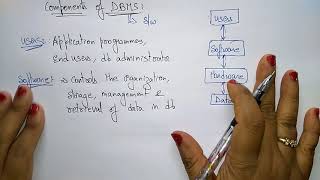 Components of DBMS:
↳ s/w
Users: Application programmer,
End users, db administrator
Software: is controls the organization,
storage, management &
retrieval of data in db
Users
Software
Hardware
Data